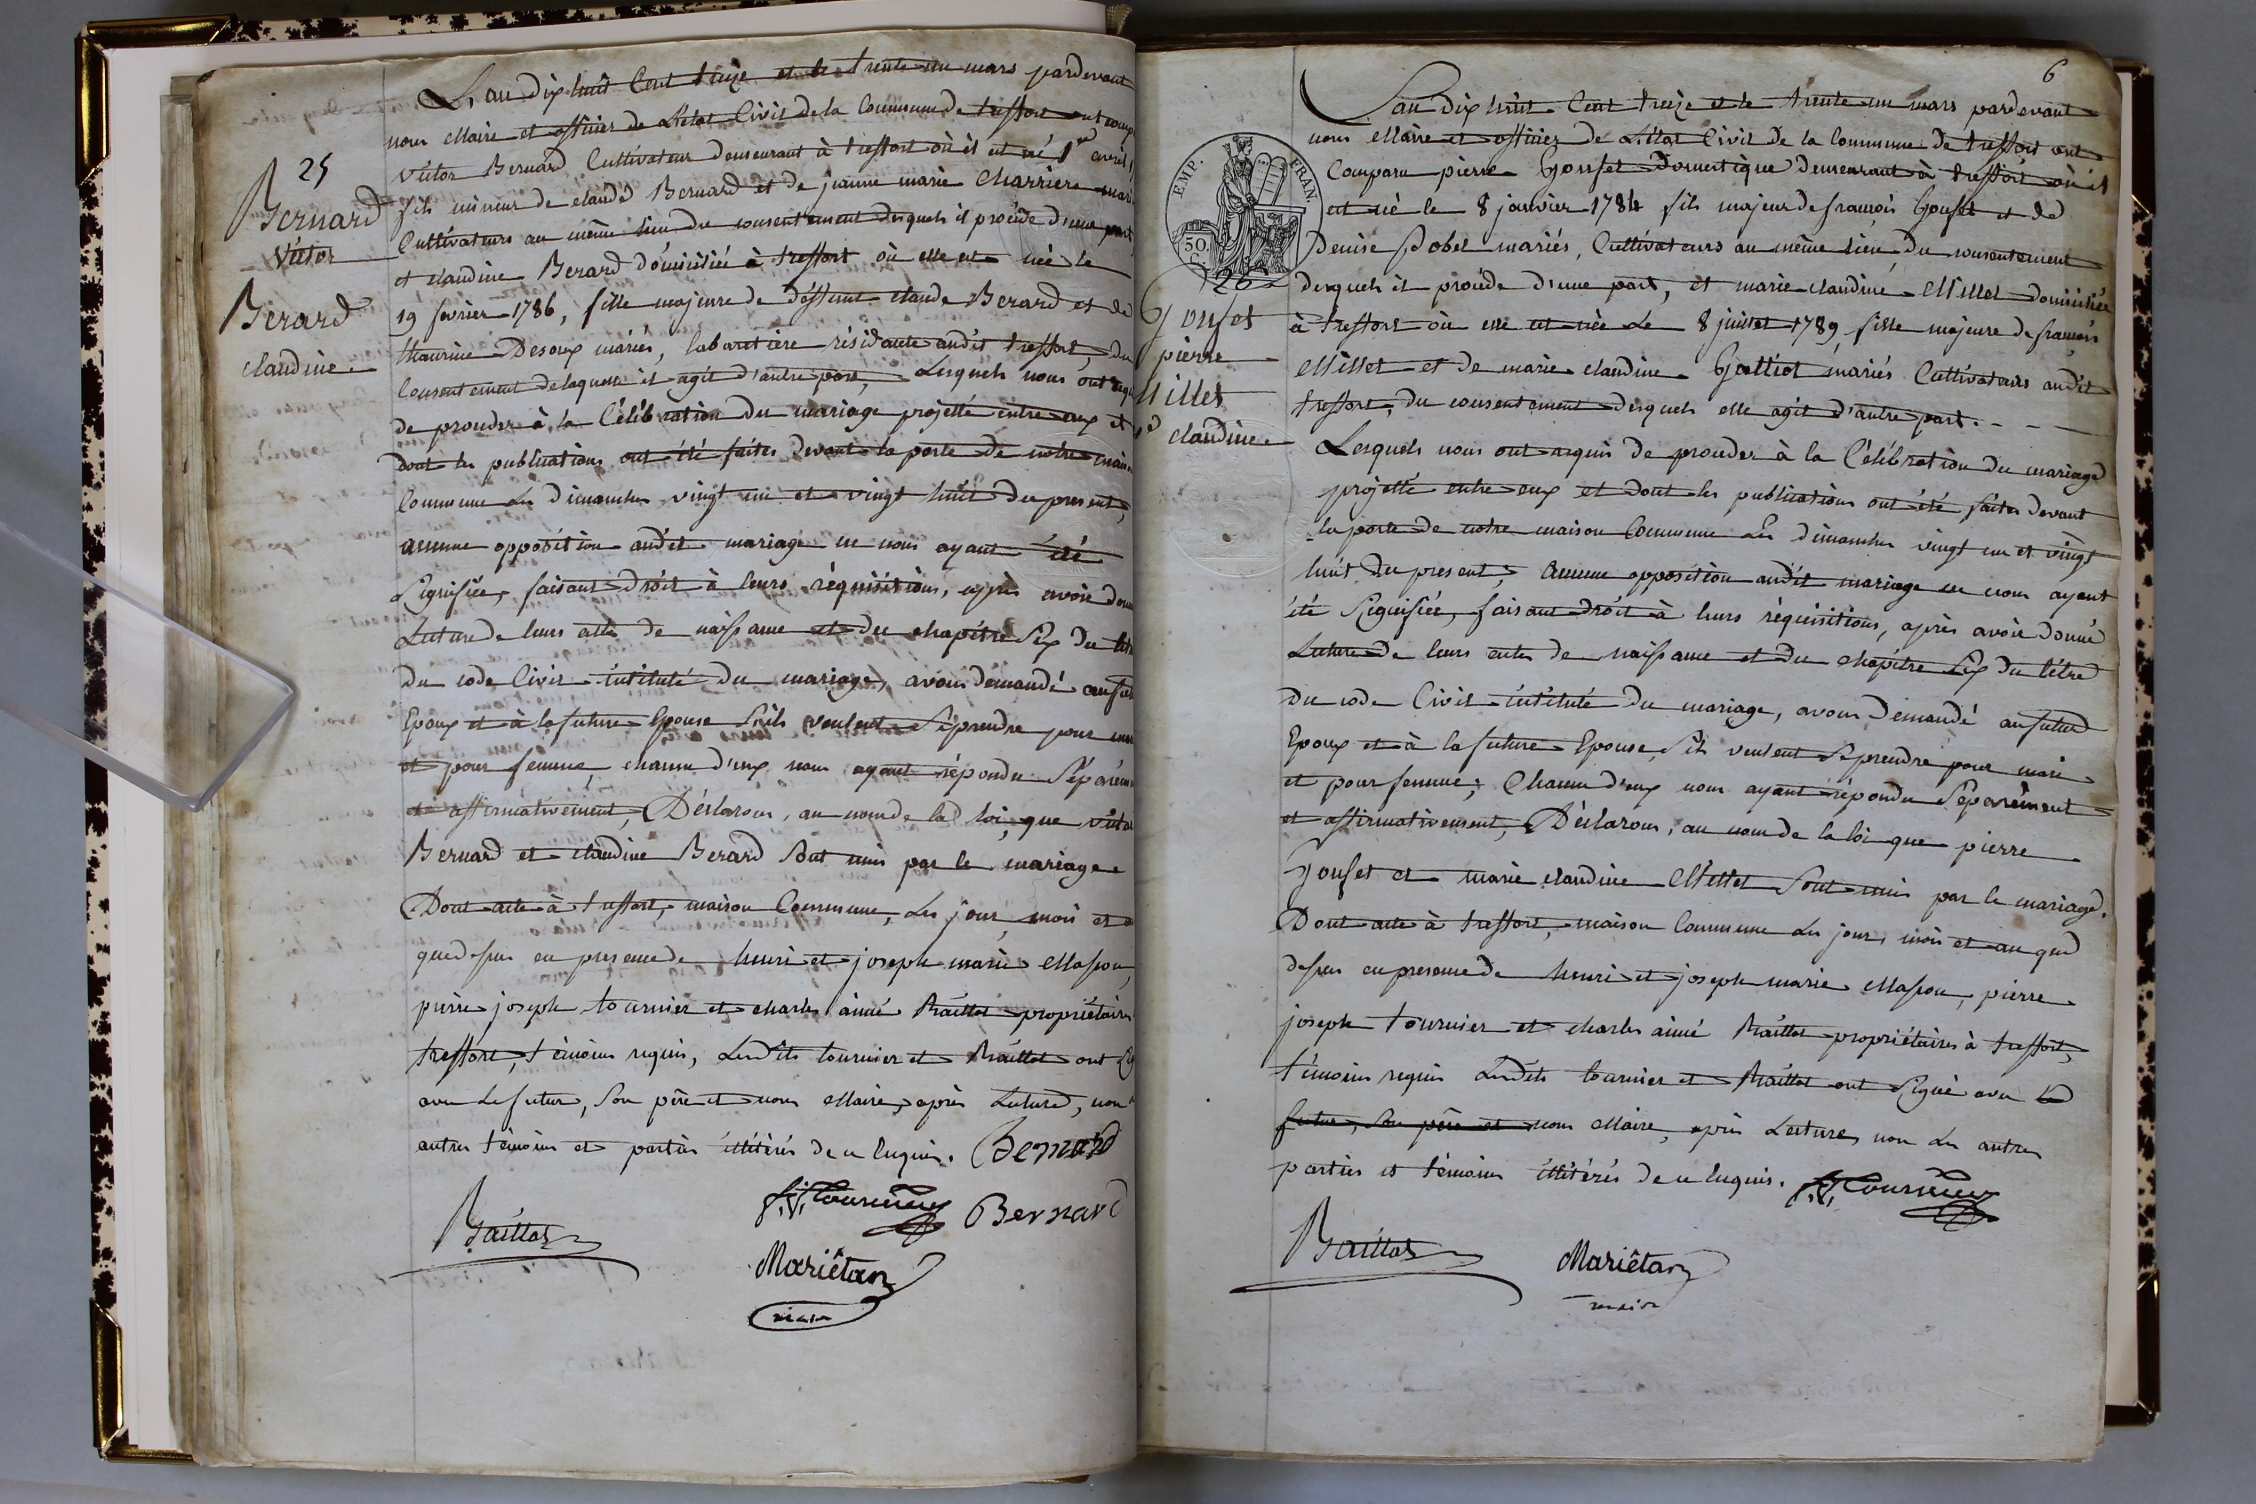 25
Bernard
Victor
Berard
claudine
L'an dix huit Cent treize et le trente un mars pardevant
nous Maire et officier de L'état Civil de la Commune de treffort ont comp
victor Bernard Cultivateur demeurant à treffort où il est né 1er avril
fils mineur de claude Bernard et de jeanne marie Charriere mari
Cultivateurs au même lieu du consentement desquels il procède d'une part
et claudine Berard domiciliée à treffort où elle est née le
19 fevrier 1786, fille majeure de deffunt claude Berard et de
thaurine Desoux mariés, Cabaretiere résidante audit treffort, du
Consentement de laquelle il agit d'autre part, Lesquels nous ont requ
de proceder à la Célébration du mariage projetté entre eux et
dont les publications ont été faites devant la porte de notre maison
Commune Les dimanches vingt un et vingt huit du present,
aucune opposition audit mariage ne nous ayant été
Signifiée, faisant droit à leurs réquisitions, après avoir donn
Lecture de leurs actes de naissance et du chapitre Six du titre
du code Civil intitulé du mariage, avons demandé au futur
Epoux et à la future Epouse S'ils veulent Se prendre pour mari
et pour femme, chacun d'eux nous ayant répondu Séparém
et affirmativement, Déclarons, au nom de la loi, que victor
Bernard et claudine Berard Sont unis par le mariage
Dont acte à treffort, maison Commune, Les jour, mois et a
que dessus en presence de henri et joseph marie Masson,
pierre joseph tournier et charles aimé Raillot propriétaires
treffort, témoins requis, Lesdits tournier et Raillot ont Sig
avec Le futur, Son père et nous Maire, après Lecture, non
autres témoins et parties illitérés de ce enquis. Bernard
P. J. Tournier Bernard
Raillot
Mariêtan
maire
6
EMP. FRAN.
50.
C.
26
Gonset
pierre
Millet
claudine
L'an dix huit Cent treize et le trente un mars pardevant
nous Maire et officier de L'état Civil de la Commune de treffort ont
Comparu pierre Gonset Domestique demeurant à treffort où il
est né le 8 janvier 1784 fils majeur de francois Gonset et de
Denise Pobel mariés, Cultivateurs au même lieu, du consentement
desquels il procède d'une part, et marie claudine Millet domiciliée
à treffort où elle est née Le 8 juillet 1789, fille majeure de francois
Millet et de marie claudine Galliot mariés Cultivateurs audit
treffort, du consentement desquels elle agit d'autre part.
Lesquels nous ont requis de proceder à la Célébration du mariage
projetté entre eux et dont les publications ont été faites devant
la porte de notre maison Commune Les dimanches vingt un et vingt
huit du present, Aucune opposition audit mariage ne nous ayant
été Signifiée, faisant droit à leurs réquisitions, après avoir donné
Lecture de leurs actes de naissance et du chapitre Six du titre
du code Civil intitulé du mariage, avons demandé au futur
Epoux et à la future Epouse, S'ils veulent Se prendre pour mari
et pour femme; Chacun d'eux nous ayant répondu Séparément
et affirmativement, Déclarons, au nom de la loi que pierre
Gonset et marie claudine Millet Sont unis par le mariage.
Dont acte à treffort, maison Commune Les jour, mois et an que
dessus en presence de henri et joseph marie Masson, pierre
joseph tournier et charles aimé Raillot propriétaires à treffort,
témoins requis Lesdits tournier et Raillot ont Signé avec le
futur, Son père et nous Maire, après Lecture, non Les autres
parties et témoins illitérés de ce enquis. P. J. Tournier
Raillot
Mariêtan
maire